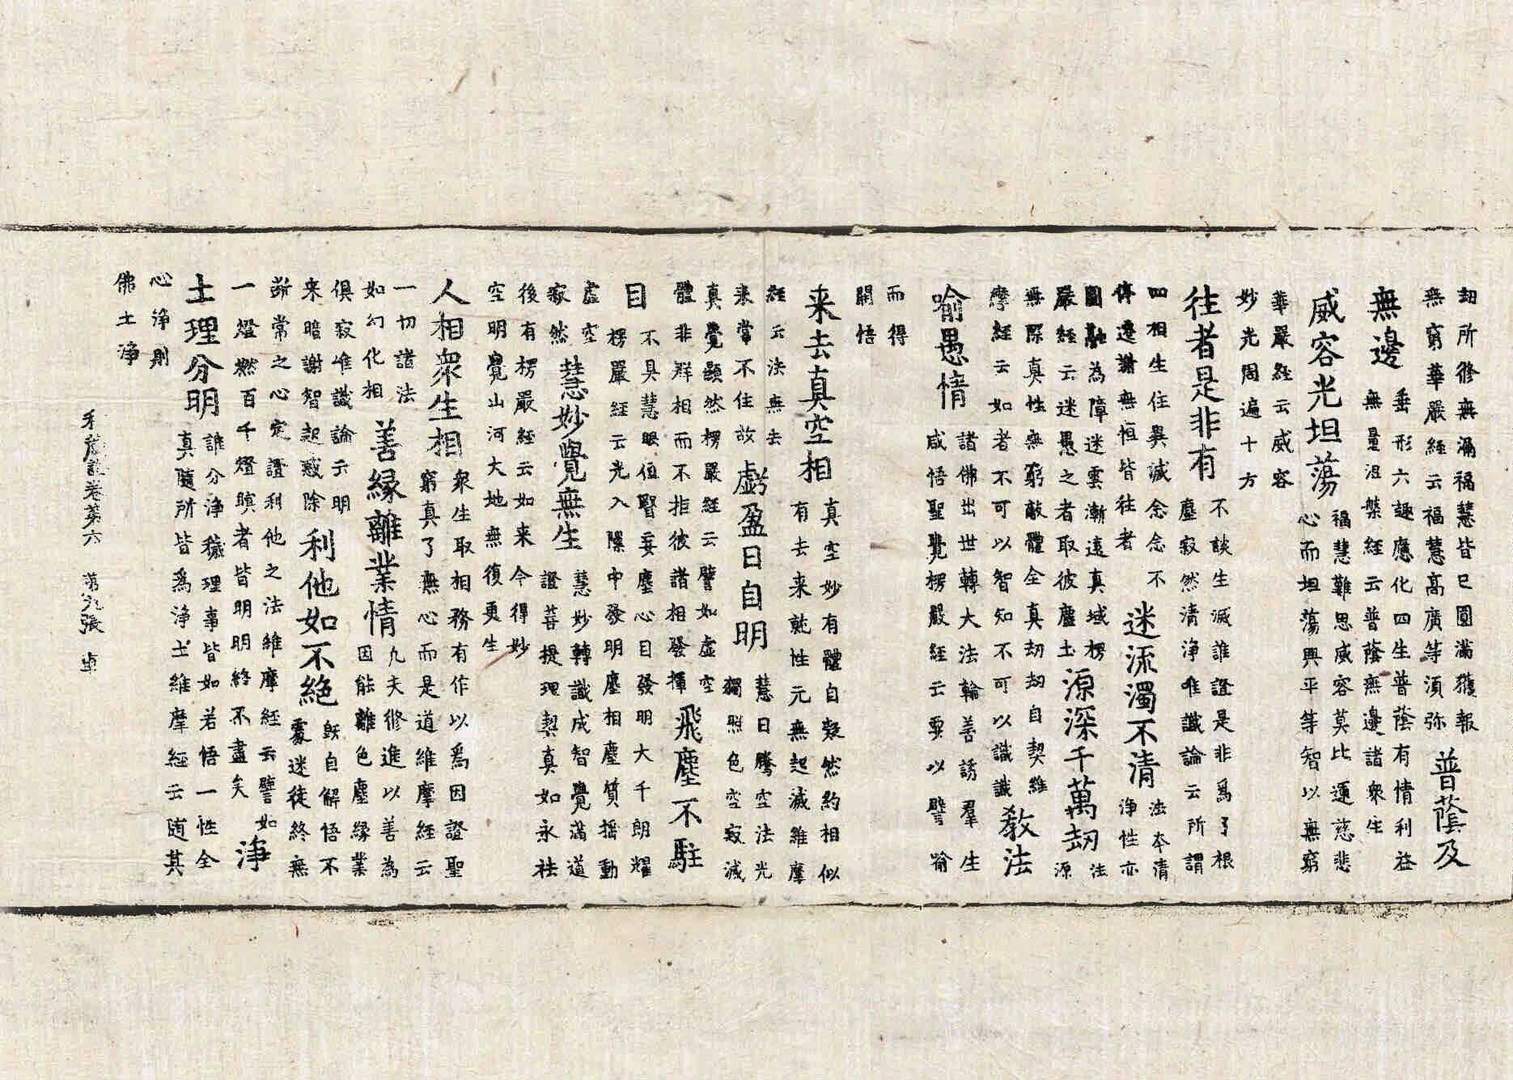 劫所修無漏福慧皆已圓滿獲報
無窮華嚴經云福慧高廣等須弥
普蔭及
無邊
垂形六趣應化四生普蔭有情利益
無量涅槃經云普蔭無邊諸衆生
威容光坦蕩
福慧難思威容莫比運慈悲
心而坦蕩興平等智以無窮
華嚴經云威容
妙光周遍十方
往者是非有
不談生滅誰證是非爲了根
塵寂然清淨唯識論云所謂
四相生住異滅念念不
停遷謝無恒皆往者
迷流濁不清
法本清
淨性亦
圓融為障迷雲漸遠真域楞
嚴經云迷愚之者取彼塵土
源深千萬劫
法
源
無際真性無窮敵體全真劫劫自契維
摩經云如者不可以智知不可以識識
教法
喻愚情
諸佛出世轉大法輪善誘羣生
咸悟聖覺楞嚴經云要以譬喻
而得
開悟
来去真空相
真空妙有體自凝然約相似
有去来就性元無起滅維摩
經云法無去
来常不住故
虧盈日自明
慧日騰空法光
獨照色空寂滅
真覺顯然楞嚴經云譬如虛空
體非群相而不拒彼諸相發揮
飛塵不駐
目
不具慧眼但竪妄塵心目發明大千朗耀
楞嚴經云光入隙中發明塵相塵質摇動
虚空
寂然
慧妙覺無生
慧妙轉識成智覺滿道
證菩提理契真如永祛
後有楞嚴經云如来今得妙
空明覺山河大地無復更生
人相衆生相
衆生取相務有作以爲因證聖
窮真了無心而是道維摩經云
一切諸法
如幻化相
善緣離業情
九夫修進以善為
因能離色塵緣業
俱寂唯識論云明
来暗謝智起惑除
利他如不絶
既自解悟不
棄迷徒終無
斷常之心定證利他之法維摩經云譬如
一燈燃百千燈暝者皆明明終不盡矣
淨
土理分明
誰分淨穢理事皆如若悟一性全
真隨所皆爲淨土維摩經云随其
心淨則
佛土淨
秘藏詮卷第六 第九張